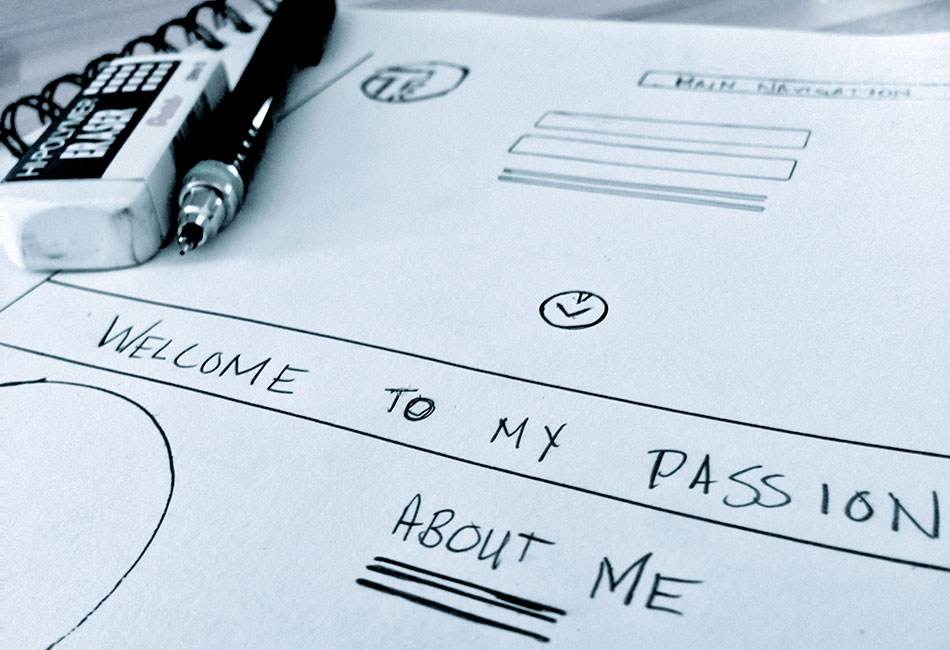 HI-POLYMER
ERASER
MAIN NAVIGATION
WELCOME TO MY PASSION
ABOUT ME